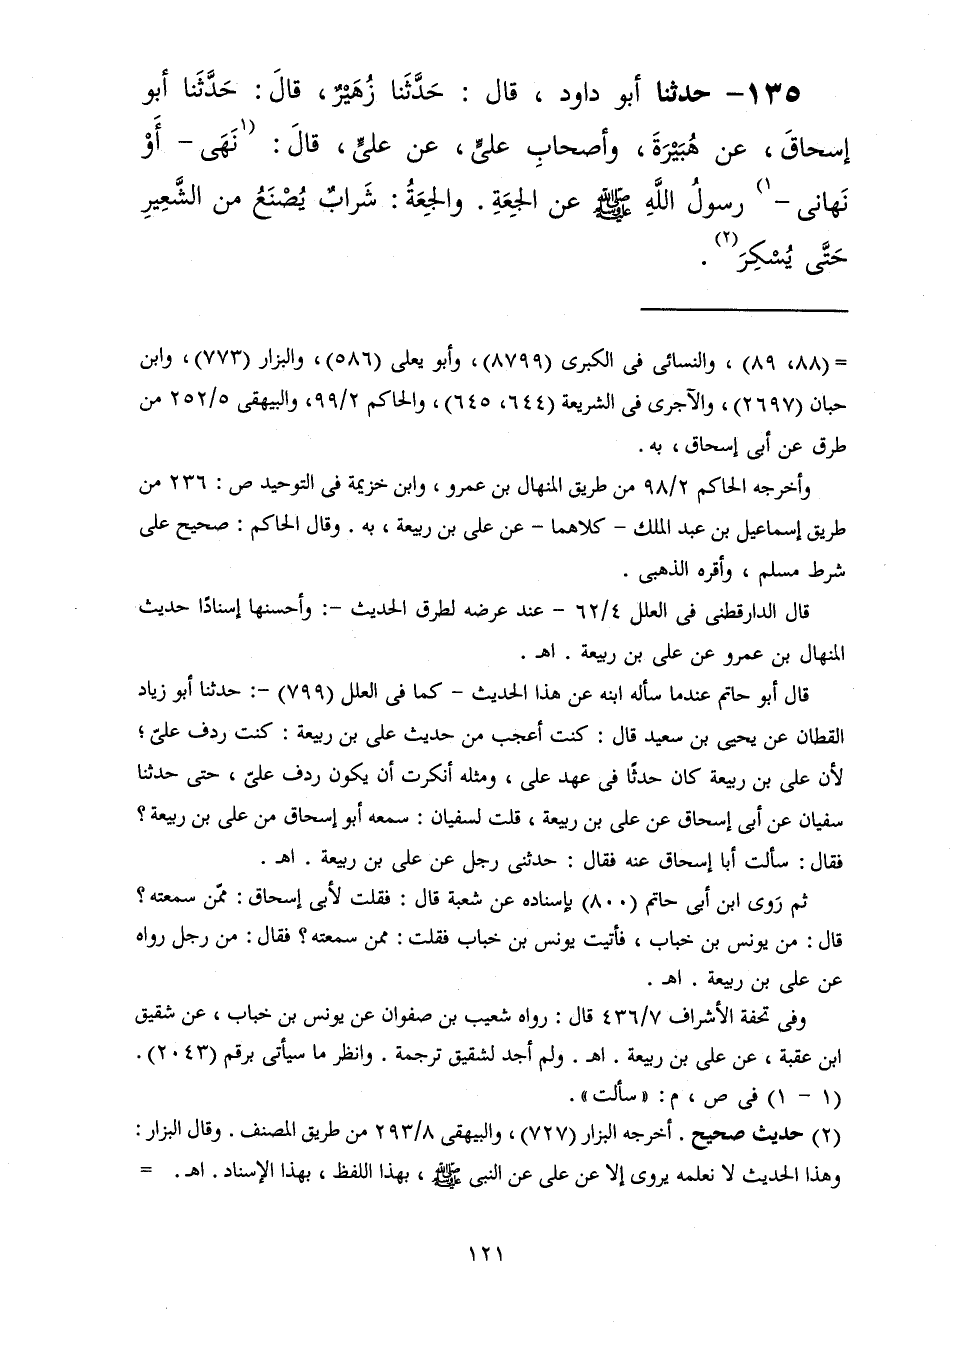 ١٣٥- حدثنا أبو داود ، قال : حَدَّثَنا زُهَيْرٌ ، قالَ : حَدَّثَنا أبو
إسحاقَ ، عن هُبَيْرَةَ ، وأصحابِ علىٍّ ، عن علىٍّ ، قالَ : (١نَهَى - أَوْ
نَهانى -١) رسولُ اللَّهِ ﷺ عن الجِعَةِ . والجِعَةُ : شَرابٌ يُصْنَعُ من الشَّعِيرِ
حَتَّى يُسْكِرَ(٢) .
= (٨٨، ٨٩) ، والنسائى فى الكبرى (٨٧٩٩)، وأبو يعلى (٥٨٦)، والبزار (٧٧٣)، وابن
حبان (٢٦٩٧)، والآجرى فى الشريعة (٦٤٤، ٦٤٥)، والحاكم ٩٩/٢، والبيهقى ٢٥٢/٥ من
طرق عن أبى إسحاق ، به .
وأخرجه الحاكم ٩٨/٢ من طريق المنهال بن عمرو ، وابن خزيمة فى التوحيد ص : ٢٣٦ من
طريق إسماعيل بن عبد الملك - كلاهما - عن على بن ربيعة ، به . وقال الحاكم : صحيح على
شرط مسلم ، وأقره الذهبى .
قال الدارقطنى فى العلل ٦٢/٤ - عند عرضه لطرق الحديث -: وأحسنها إسنادًا حديث
المنهال بن عمرو عن على بن ربيعة . اهـ .
قال أبو حاتم عندما سأله ابنه عن هذا الحديث - كما فى العلل (٧٩٩) -: حدثنا أبو زياد
القطان عن يحيى بن سعيد قال : كنت أعجب من حديث على بن ربيعة : كنت ردف علىّ ؛
لأن على بن ربيعة كان حدثًا فى عهد على ، ومثله أنكرت أن يكون ردف علىّ ، حتى حدثنا
سفيان عن أبى إسحاق عن على بن ربيعة ، قلت لسفيان : سمعه أبو إسحاق من على بن ربيعة ؟
فقال : سألت أبا إسحاق عنه فقال : حدثنى رجل عن على بن ربيعة . اهـ .
ثم رَوى ابن أبى حاتم (٨٠٠) بإسناده عن شعبة قال : فقلت لأبى إسحاق : ممّن سمعته ؟
قال : من يونس بن خباب ، فأتيت يونس بن خباب فقلت : ممن سمعته ؟ فقال : من رجل رواه
عن على بن ربيعة . اهـ .
وفى تحفة الأشراف ٤٣٦/٧ قال : رواه شعيب بن صفوان عن يونس بن خباب ، عن شقيق
ابن عقبة ، عن على بن ربيعة . اهـ . ولم أجد لشقيق ترجمة . وانظر ما سيأتى برقم (٢٠٤٣).
(١ - ١) فى ص ، م : «سألت» .
(٢) حديث صحيح . أخرجه البزار (٧٢٧)، والبيهقى ٢٩٣/٨ من طريق المصنف . وقال البزار :
وهذا الحديث لا نعلمه يروى إلا عن على عن النبى ﷺ ، بهذا اللفظ ، بهذا الإسناد . اهـ . =
١٢١